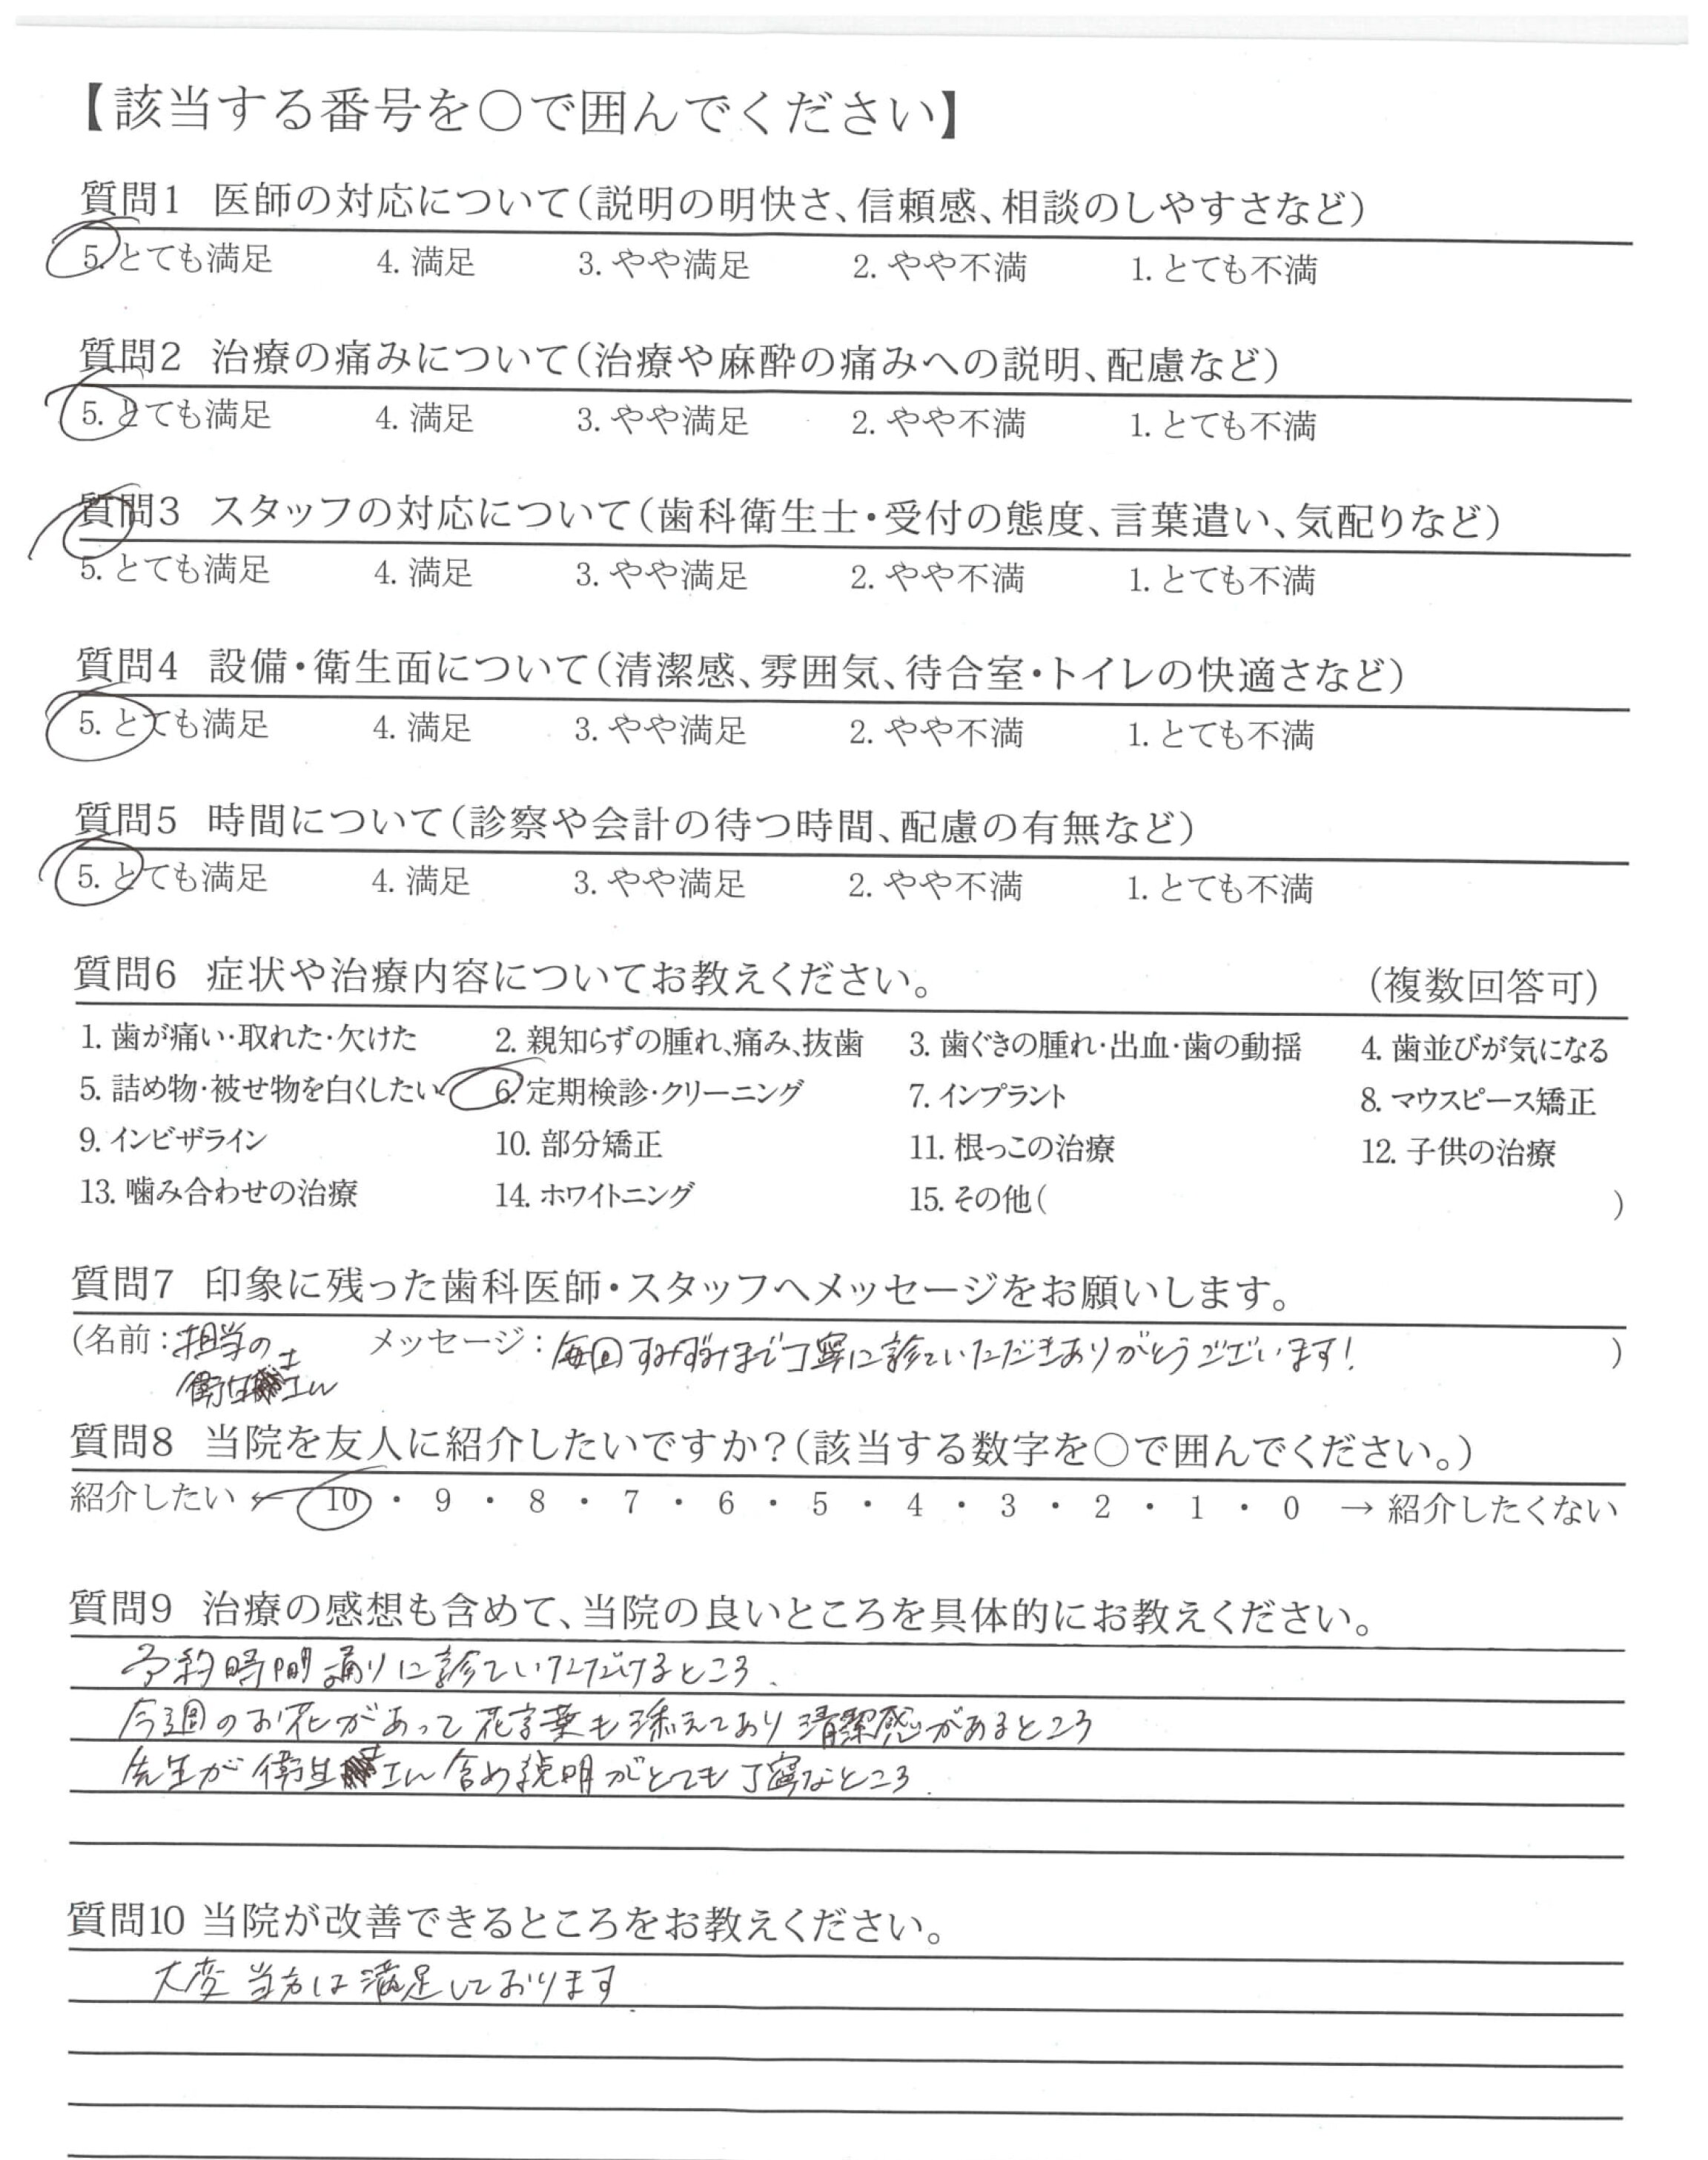 【該当する番号を〇で囲んでください】
質問1 医師の対応について(説明の明快さ、信頼感、相談のしやすさなど)
5. とても満足 4. 満足 3. やや満足 2. やや不満 1. とても不満
質問2 治療の痛みについて(治療や麻酔の痛みへの説明、配慮など)
5. とても満足 4. 満足 3. やや満足 2. やや不満 1. とても不満
質問3 スタッフの対応について(歯科衛生士・受付の態度、言葉遣い、気配りなど)
5. とても満足 4. 満足 3. やや満足 2. やや不満 1. とても不満
質問4 設備・衛生面について(清潔感、雰囲気、待合室・トイレの快適さなど)
5. とても満足 4. 満足 3. やや満足 2. やや不満 1. とても不満
質問5 時間について(診察や会計の待つ時間、配慮の有無など)
5. とても満足 4. 満足 3. やや満足 2. やや不満 1. とても不満
質問6 症状や治療内容についてお教えください。 (複数回答可)
1. 歯が痛い・取れた・欠けた 2. 親知らずの腫れ、痛み、抜歯 3. 歯ぐきの腫れ・出血・歯の動揺 4. 歯並びが気になる
5. 詰め物・被せ物を白くしたい 6. 定期検診・クリーニング 7. インプラント 8. マウスピース矯正
9. インビザライン 10. 部分矯正 11. 根っこの治療 12. 子供の治療
13. 噛み合わせの治療 14. ホワイトニング 15. その他( )
質問7 印象に残った歯科医師・スタッフへメッセージをお願いします。
(名前:担当の メッセージ:毎回すみずみまで丁寧に診ていただきありがとうございます! )
衛生士さん
質問8 当院を友人に紹介したいですか?(該当する数字を〇で囲んでください。)
紹介したい ← 10 ・ 9 ・ 8 ・ 7 ・ 6 ・ 5 ・ 4 ・ 3 ・ 2 ・ 1 ・ 0 → 紹介したくない
質問9 治療の感想も含めて、当院の良いところを具体的にお教えください。
予約時間通りに診ていただけるところ、
今週のお花があって花言葉も添えてあり清潔感があるところ
先生が衛生士さん含め説明がとても丁寧なところ.
質問10 当院が改善できるところをお教えください。
大変当方は満足しております